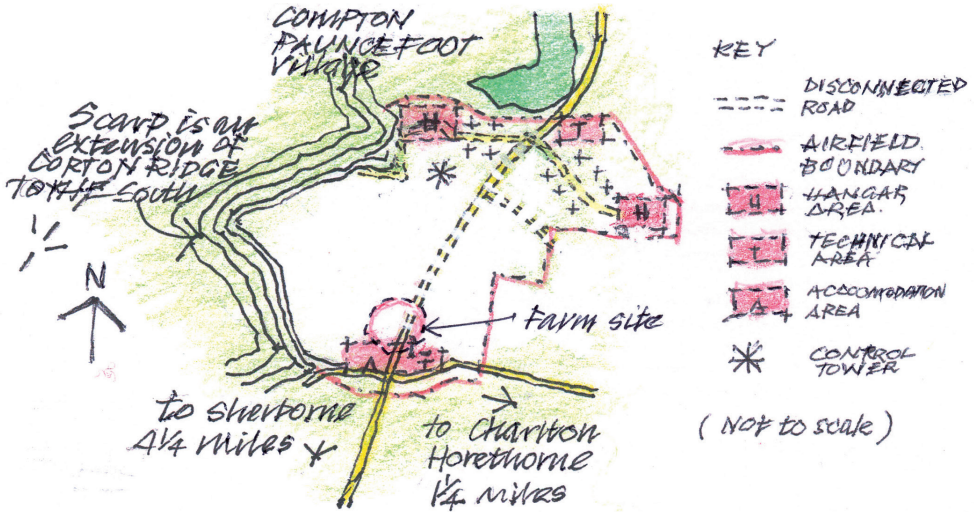 COMPTON
PAUNCEFOOT
Village
Scarp is an
extension of
CORTON RIDGE
TO THE South
N
H
T
H
A
Farm site
to Sherborne
4¼ miles
to Charlton
Horethorne
1¼ Miles
KEY
DISCONNECTED
ROAD
AIRFIELD
BOUNDARY
H
HANGAR
AREA.
T
TECHNICAL
AREA
A
ACCOMODATION
AREA
CONTROL
TOWER
(Not to scale)